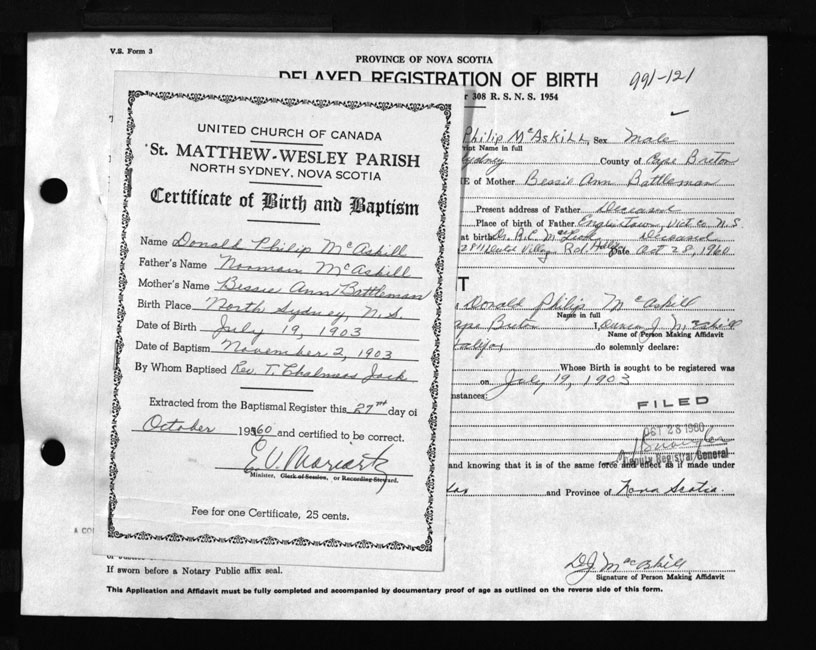 V.S. Form 3
PROVINCE OF NOVA SCOTIA
DELAYED REGISTRATION OF BIRTH
991-121
308 R. S. N. S. 1954
UNITED CHURCH OF CANADA
St. MATTHEW-WESLEY PARISH
NORTH SYDNEY, NOVA SCOTIA
Certificate of Birth and Baptism
Name Donald Philip McAskill
Father's Name Norman McAskill
Mother's Name Bessie Ann Battleman
Birth Place North Sydney, N.S.
Date of Birth July 19, 1903
Date of Baptism November 2, 1903
By Whom Baptised Rev. T. Chalmers Jack
Extracted from the Baptismal Register this 27th day of
October 1960 and certified to be correct.
Minister, Clerk of Session, or Recording Steward.
Fee for one Certificate, 25 cents.
Philip McAskill, Sex Male
Print Name in full
Sydney County of Cape Breton
of Mother Bessie Ann Battleman
Present address of Father Deceased
Place of birth of Father Englishtown, Vict. Co. N.S.
at birth Dr. R.C. Deceased
Date Oct 28, 1960
Donald Philip McAskill
Name in full
Cape Breton I, Duncan J. McAskill
Name of Person Making Affidavit
Halifax, do solemnly declare:
Whose Birth is sought to be registered was
on July 19, 1903
FILED
OCT 28 1960
Deputy Registrar General
and knowing that it is of the same force and effect as if made under
and Province of Nova Scotia.
If sworn before a Notary Public affix seal.
D J MacAskill
Signature of Person Making Affidavit
This Application and Affidavit must be fully completed and accompanied by documentary proof of age as outlined on the reverse side of this form.